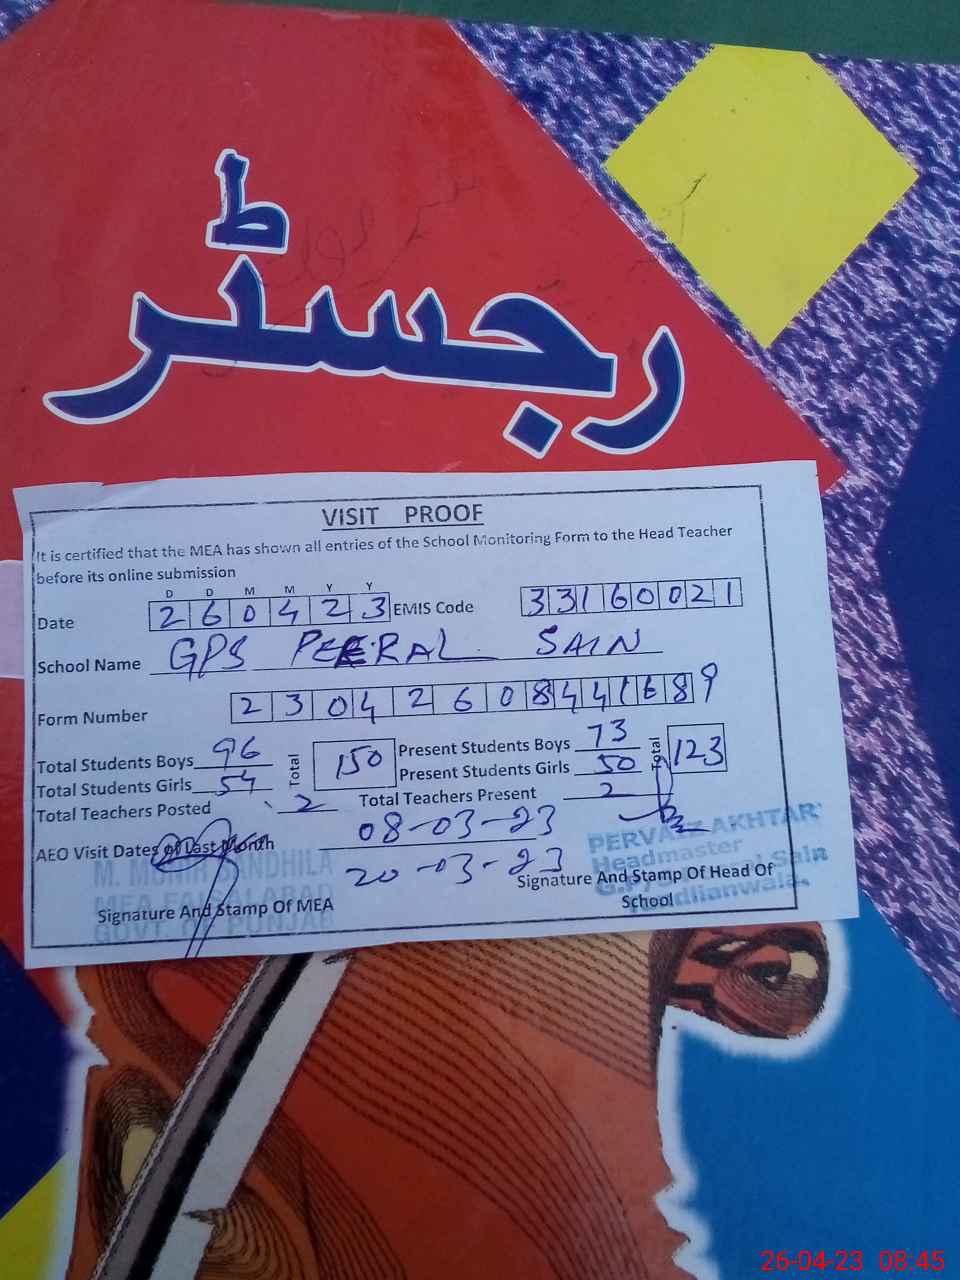 رجسٹر
VISIT PROOF
It is certified that the MEA has shown all entries of the School Monitoring Form to the Head Teacher
before its online submission
D D M M Y Y
Date 260423 EMIS Code 33160021
School Name GPS PEERAL SAIN
Form Number 23042608441689
Total Students Boys 96 Total 150 Present Students Boys 73 Total 123
Total Students Girls 54 Present Students Girls 50
Total Teachers Posted 2 Total Teachers Present 2
AEO Visit Dates of Last Month 08-03-23
20-03-23
M. MUNIR SANDHILA
MEA FAISALABAD
GOVT. OF PUNJAB
Signature And Stamp Of MEA
PERVAIZ AKHTAR
Headmaster
Sain
Tandlianwala.
Signature And Stamp Of Head Of
School
26-04-23 08:45